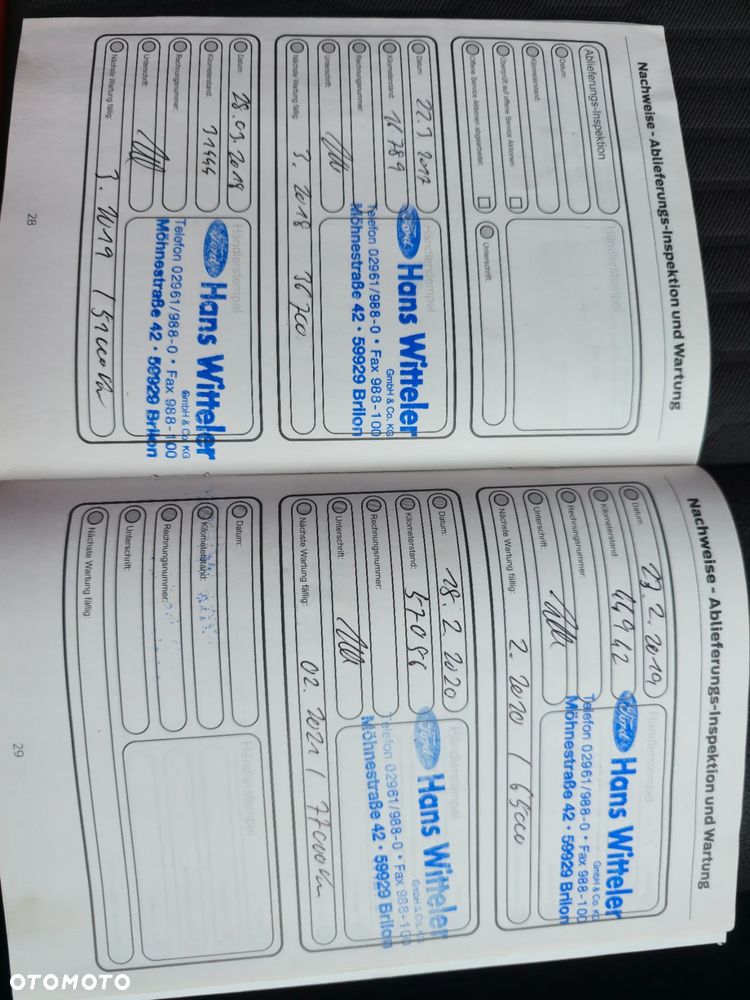 Nachweise - Ablieferungs-Inspektion und Wartung
Ablieferungs-Inspektion
Datum:
Kilometerstand:
Überprüft auf offene Service Aktionen:
Offene Service Aktionen abgearbeitet:
Händlerstempel
Unterschrift:
Datum: 22.3 2017
Kilometerstand: 16789
Rechnungsnummer:
Unterschrift:
Nächste Wartung fällig: 3. 2018 36700
Händlerstempel
Ford Hans Witteler
GmbH & Co. KG
Telefon 02961/988-0 • Fax 988-100
Möhnestraße 42 • 59929 Brilon
Datum: 28.03.2018
Kilometerstand: 31444
Rechnungsnummer:
Unterschrift:
Nächste Wartung fällig: 3. 2019 / 51000 km
Händlerstempel
Ford Hans Witteler
GmbH & Co. KG
Telefon 02961/988-0 • Fax 988-100
Möhnestraße 42 • 59929 Brilon
28
Nachweise - Ablieferungs-Inspektion und Wartung
Datum: 2. 2019
Kilometerstand: 44942
Rechnungsnummer:
Unterschrift:
Nächste Wartung fällig: 2. 2020 / 65000
Händlerstempel
Ford Hans Witteler
GmbH & Co. KG
Telefon 02961/988-0 • Fax 988-100
Möhnestraße 42 • 59929 Brilon
Datum: 18. 2. 2020
Kilometerstand:
Rechnungsnummer:
Unterschrift:
Nächste Wartung fällig: 02. 2021 / 77000 km
Händlerstempel
Ford Hans Witteler
GmbH & Co. KG
Telefon 02961/988-0 • Fax 988-100
Möhnestraße 42 • 59929 Brilon
Datum:
Kilometerstand:
Rechnungsnummer:
Unterschrift:
Nächste Wartung fällig:
Händlerstempel
29
OTOMOTO